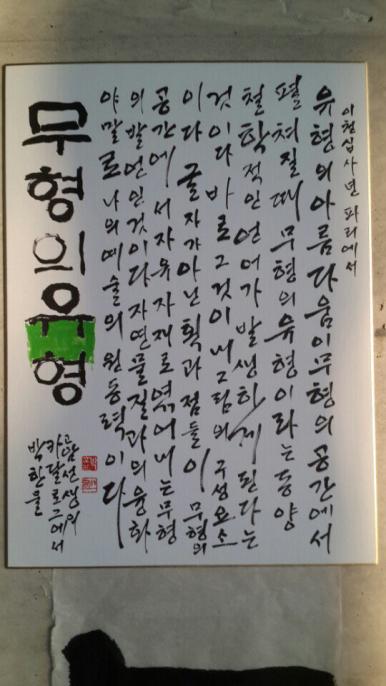 이천십사년 파리에서
유형의 아름다움이 무형의 공간에서
펼쳐질때 무형의 유형이라는 동양
철학적인 언어가 발생하게 된다는
것이다 바로 그것이 내 그림의 구성요소
이다 글자가 아닌 획과 점들이 무형의
공간에서 자유자재로 엮어내는 무형
의 발언인 것이다 자연물질과의 융화
야말로 나의 예술의 원동력이다
무형의유형
고암선생의
카달로그에서